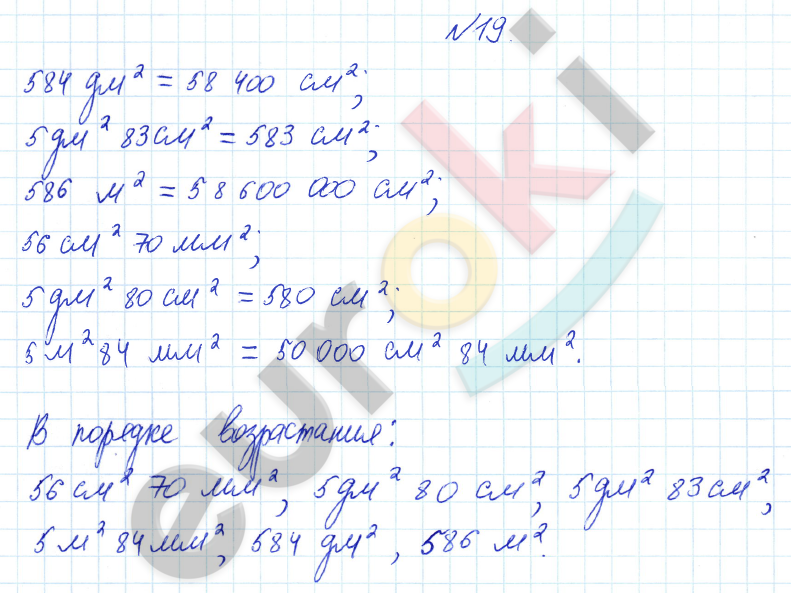 №19.
584 дм² = 58 400 см²;
5 дм² 83 см² = 583 см²;
586 м² = 58 600 000 см²;
56 см² 70 мм²;
5 дм² 80 см² = 580 см²;
5 м² 84 мм² = 50 000 см² 84 мм².
В порядке возрастания:
56 см² 70 мм², 5 дм² 80 см², 5 дм² 83 см²,
5 м² 84 мм², 584 дм², 586 м².
euroki